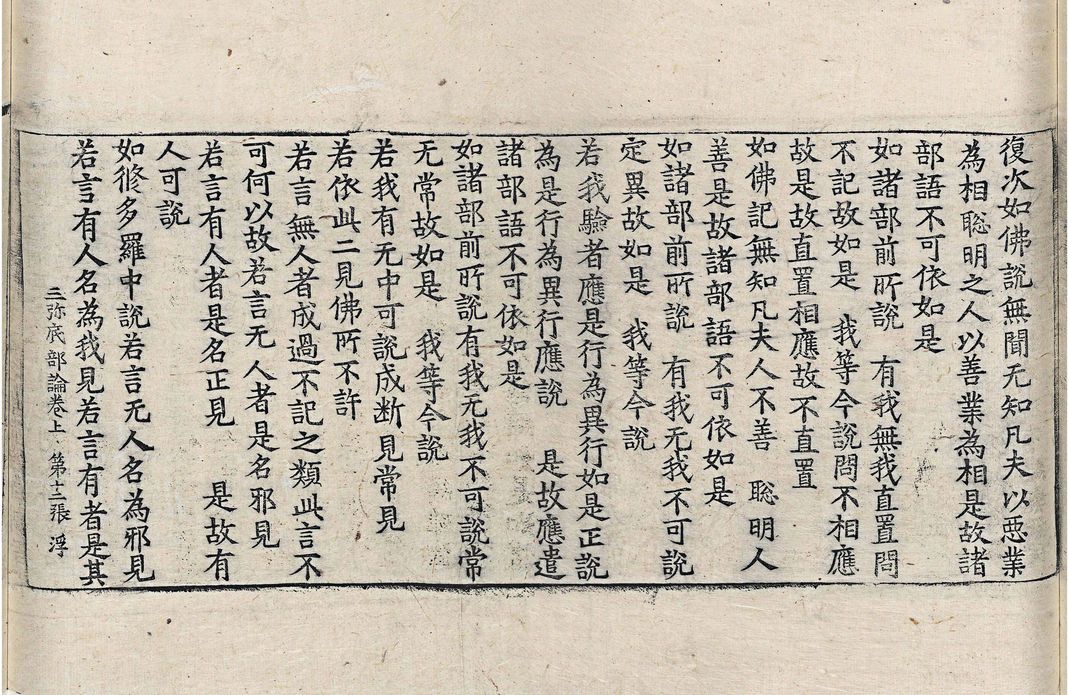 復次如佛說無聞无知凡夫以惡業
為相聡明之人以善業為相是故諸
部語不可依如是
如諸部前所說　有我無我直置問
不記故如是　我等今說問不相應
故是故直置相應故不直置
如佛記無知凡夫人不善　聡明人
善是故諸部語不可依如是
如諸部前所說　有我无我不可說
定異故如是　我等今說
若我驗者應是行為異行如是正說
為是行為異行應說　是故應遣
諸部語不可依如是
如諸部前所說有我无我不可說常
无常故如是　我等今說
若我有无中可說成断見常見
若依此二見佛所不許
若言無人者成過不記之類此言不
可何以故若言无人者是名邪見
若言有人者是名正見　是故有
人可說
如脩多羅中說若言无人名為邪見
若言有人名為我見若言有者是其
三弥底部論卷上　第十三張　浮